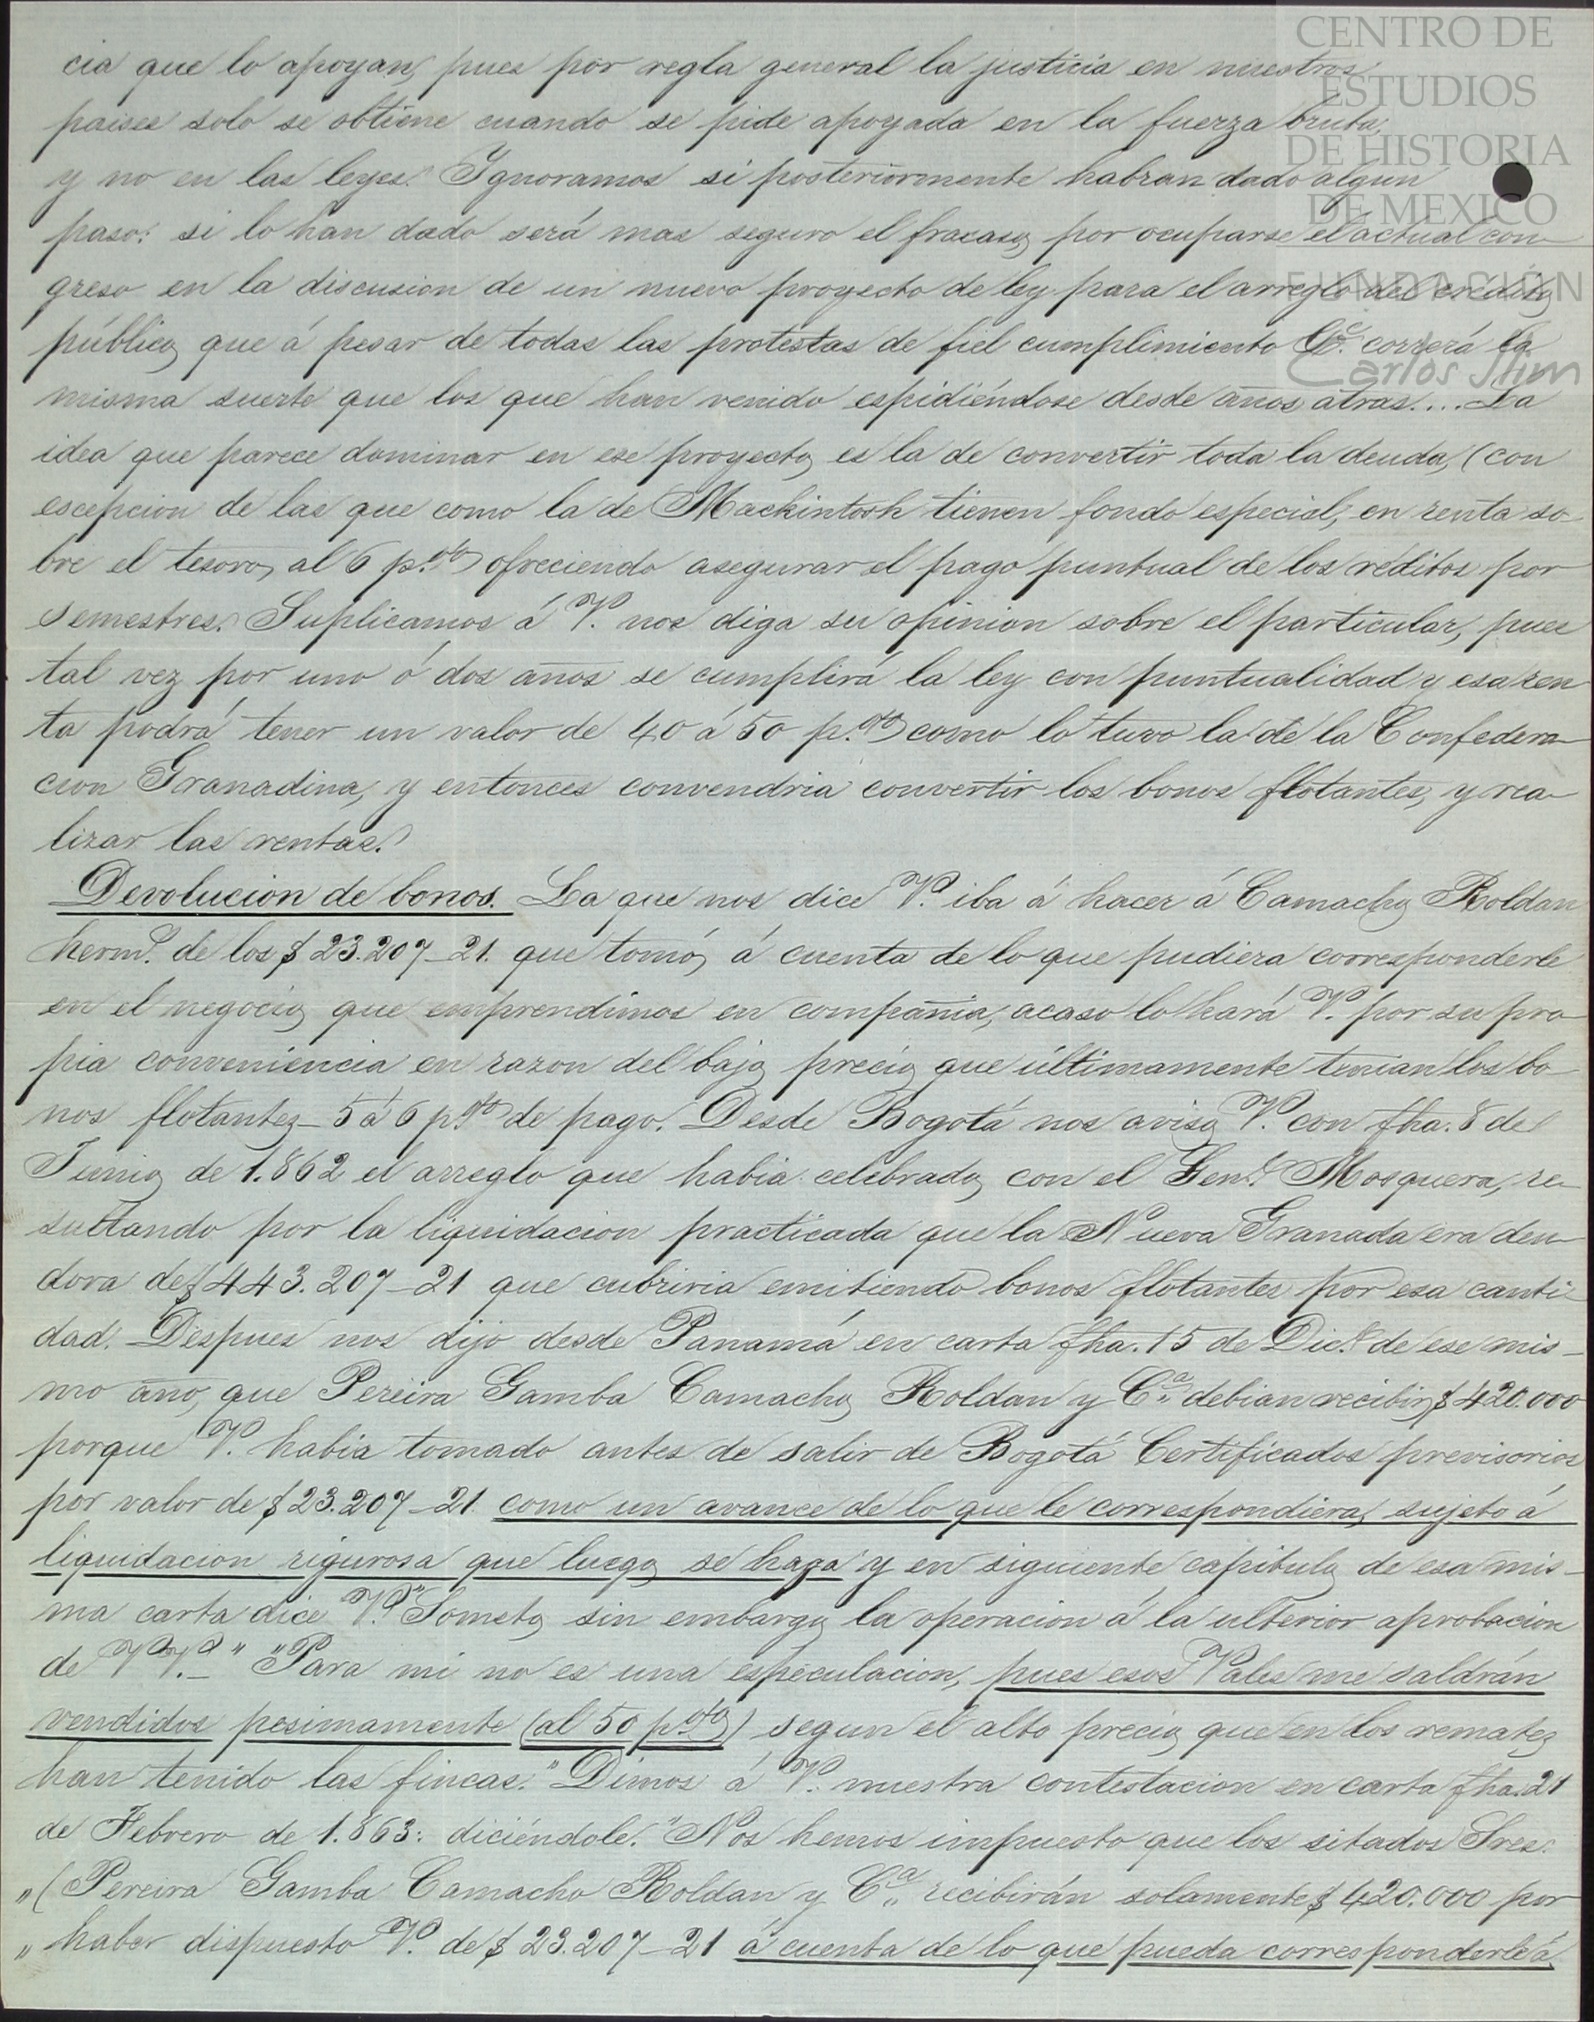 CENTRO DE
ESTUDIOS
DE HISTORIA
DE MEXICO
FUNDACIÓN
Carlos Slim
cia que lo apoyan, pues por regla general la justicia en nuestros
paises solo se obtiene cuando se pide apoyada en la fuerza bruta,
y no en las leyes. Ignoramos si posteriormente habran dado algun
paso: si lo han dado será mas seguro el fracaso, por ocuparse el actual con-
greso en la discusion de un nuevo proyecto de ley para el arreglo del crédito
público, que á pesar de todas las protestas de fiel cumplimiento &c. correrá la
misma suerte que los que han venido espidiéndose desde años atras.... La
idea que parece dominar en ese proyecto, es la de convertir toda la deuda, (con
escepcion de las que como la de Mackintosh tienen fondo especial, en renta so-
bre el tesoro, al 6 p.% ofreciendo asegurar el pago puntual de los réditos por
semestres. Suplicamos á V. nos diga su opinion sobre el particular, pues
tal vez por uno ó dos años se cumplirá la ley con puntualidad y esa ren-
ta podrá tener un valor de 40 á 50 p.% como lo tuvo la de la Confedera-
cion Granadina, y entonces convendria convertir los bonos flotantes, y rea-
lizar las rentas.
Devolucion de bonos. La que nos dice V. iba á hacer á Camacho Roldan
herm.s de los $ 23.207-21. que tomó, á cuenta de lo que pudiera corresponderle
en el negocio, que emprendimos en compañia, acaso lo hará V. por su pro-
pia conveniencia en razon del bajo precio que últimamente tenian los bo-
nos flotantes- 5 á 6 p.% de pago. Desde Bogotá nos avisó V. con fha. 8 de
Junio de 1.862 el arreglo que habia celebrado con el Gen.l Mosquera, re-
sultando por la liquidacion practicada que la Nueva Granada era deu-
dora de $ 443.207-21 que cubriria emitiendo bonos flotantes por esa canti-
dad. Despues nos dijo desde Panamá en carta fha. 15 de Dic.e de ese mis-
mo año, que Pereira Gamba Camacho Roldan y C.a debian recibir $ 420.000
porque V. habia tomado antes de salir de Bogotá Certificados previsorios
por valor de $ 23.207-21. como un avance de lo que le correspondiera, sujeto á
liquidacion rigurosa que luego se haga y en siguiente capitulo de esa mis-
ma carta dice V. "Someto, sin embargo, la operacion á la ulterior aprobacion
de V V.-" "Para mi no es una especulacion, pues esos Vales me saldrán
vendidos pesimamente (al 50 p.%) segun el alto precio, que en los remates
han tenido las fincas." Dimos á V. nuestra contestacion en carta fha. 21
de Febrero de 1.863: diciéndole. "Nos hemos impuesto que los sitados Sres.
" (Pereira Gamba Camacho Roldan y C.a recibirán solamente $ 420.000 por
" haber dispuesto V. de $ 23.207-21 á cuenta de lo que pueda corresponderle á